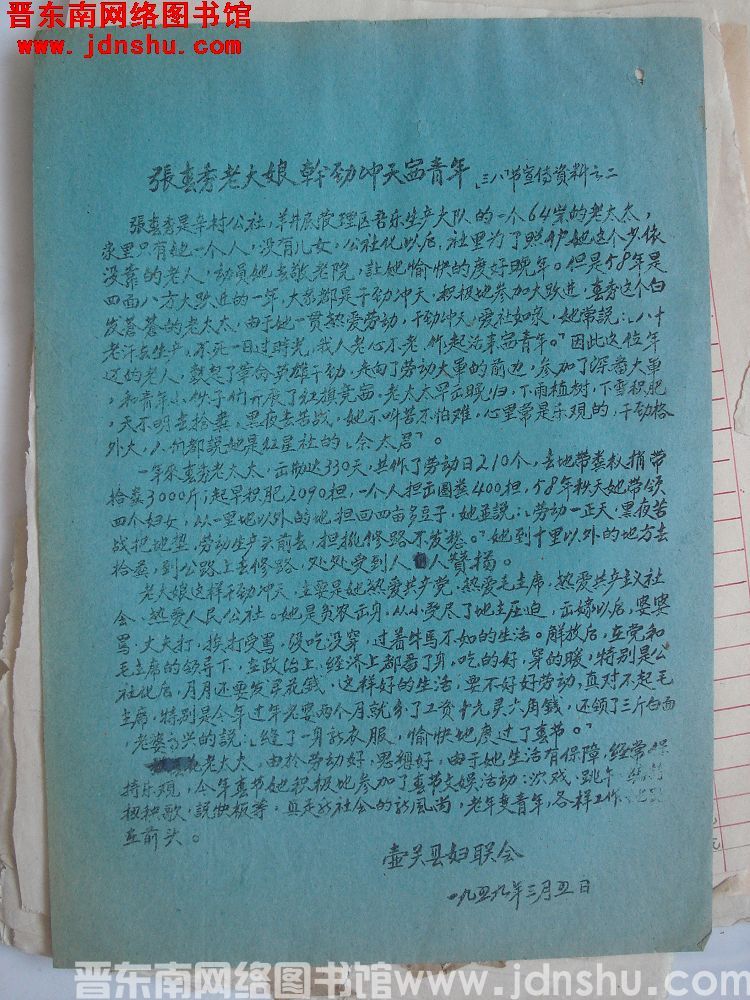 晋东南网络图书馆
www.jdnshu.com
張春秀老大娘幹劲冲天赛青年 三八节宣传资料之二
張春秀是辛村公社，羊井底管理区吾乐生产大队的一个64岁的老太太，
家里只有她一个人，没有儿女，公社化以后，社里为了照护她这个少依
没靠的老人，动员她去敬老院，让她愉快的度好晚年。但是58年是
四面八方大跃进的一年，大家都是干劲冲天，积极地参加大跃进，春秀这个白
发蒼蒼的老太太，由于她一貫热爱劳动，干劲冲天，爱社如家，她常說：“八十
老汗去生产，不死一日过時光，我人老心不老，作起活来赛青年。”因此这位年
迈的老人，鼓起了革命英雄干劲，走向了劳动大軍的前边，参加了深番大軍
，和青年小伙子们开展了红旗竞赛。老太太早出晚归，下雨植树，下雪积肥
，天不明去拾粪，黑夜去苦战，她不叫苦不怕难，心里常是乐观的，干劲格
外大，人们都説她是红星社的“佘太君”。
一年来春秀老太太，出勤达330天，共作了劳动日210个，去地带粪权捎带
拾粪3000斤；起早积肥2090担，一个人担出圈粪400担，58年秋天她带领
四个妇女，从一里地以外的地担回四亩多豆子，她孟説：“劳动一正天，黑夜苦
战把地垫，劳动生产头前去，担挑修路不发愁。”她到十里以外的地方去
拾粪，到公路上去修路，处处受到人人贊揚。
老大娘这样干劲冲天，主要是她热爱共产党，热爱毛主席，热爱共产主义社
会、热爱人民公社。她是贫农出身，从小受尽了地主压迫，出嫁以后，婆婆
骂，丈夫打，挨打受骂，没吃没穿，过着牛馬不如的生活。解放后，在党和
毛主席的领导下，在政治上，经济上都番了身，吃的好，穿的暖，特别是公
社化后，月月还要发洋花钱，这样好的生活，要不好好劳动，真对不起毛
主席，特别是今年过年老婆两个月就分了工资十九元六角钱，还领了三斤白面
，老婆高兴的説：“缝了一身新衣服，愉快地度过了春节。”
老太太，由於劳动好，思想好，由于她生活有保障，经常保
持乐观，今年春节她积极地参加了春节文娱活动：次戏、跳午
扭秧歌、説快板等，真是新社会的新風尚，老年变青年，各样工作
在前头。
壶关县妇联会
一九五九年三月五日
晋东南网络图书馆 www.jdnshu.com